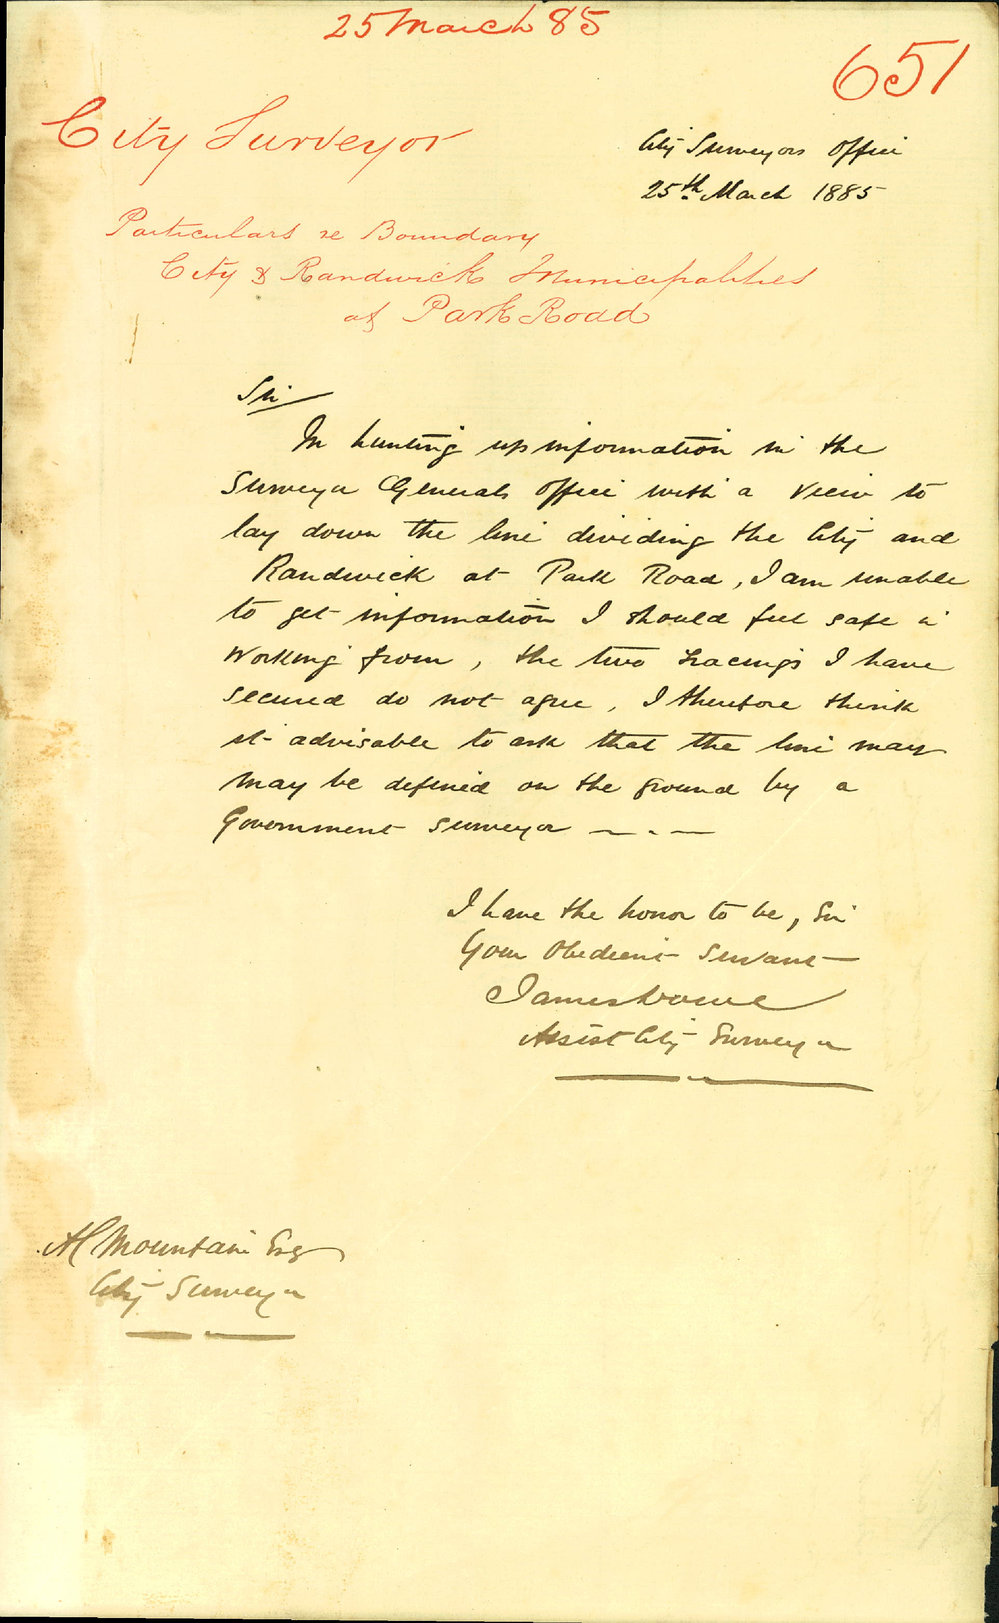 25 March 85
651
City Surveyor
City Surveyors Office
25th March 1885
Particulars re Boundary
City & Randwick Municipalities
at Park Road
Sir
In hunting up information in the
Surveyor Generals Office with a view to
lay down the line dividing the City and
Randwick at Park Road, I am unable
to get information I should feel safe in
working from, the two tracings I have
secured do not agree, I therefore think
it advisable to ask that the line may
may be defined on the ground by a
Government Surveyor
I have the honor to be, Sir
Your Obedient Servant
James
Assist City Surveyor
A C Mountain Esq
City Surveyor